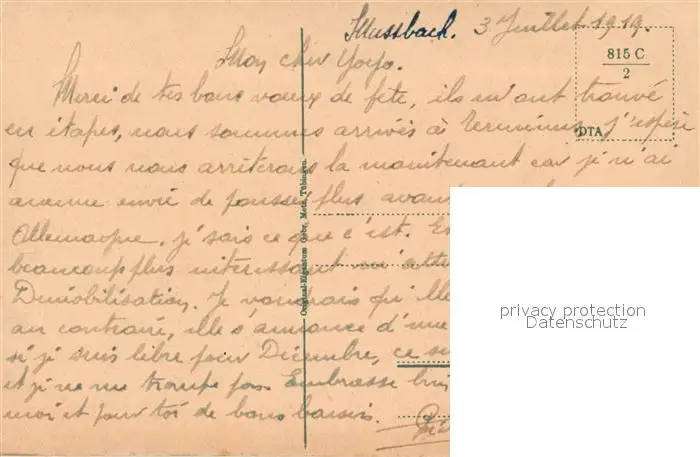 Mussbach. 3 Juillet 1919.
Mon cher Yoyo.
815 C
2
DTA
Merci de tes bons vœux de fête, ils m'ont trouvé
en étapes, nous sommes arrivés à Terminus, j'espère
que nous nous arrêterons là maintenant car je n'ai
aucune envie de pousser plus avant
Allemagne, je sais ce que c'est.
beaucoup plus intéressant
Démobilisation. Je voudrais qu'elle
au contraire, elle s'annonce d'une
si je suis libre pour Décembre, ce
et je ne me trompe pas. Embrasse
moi et pour toi de bons baisers.
Original-Eigentum Gebr. Metz, Tübingen.
privacy protection
Datenschutz